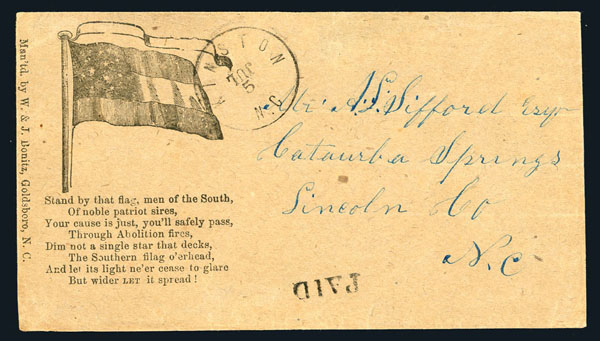 Man'td. by W. & J. Bonitz, Goldsboro, N. C.
KINSTON N.C.
JUL
5
Mr. A. L. Sifford Esqr
Cataurba Springs
Lincoln Co
N.C
Stand by that flag, men of the South,
Of noble patriot sires,
Your cause is just, you'll safely pass,
Through Abolition fires,
Dim not a single star that decks,
The Southern flag o'erhead,
And let its light ne'er cease to glare
But wider LET it spread!
PAID